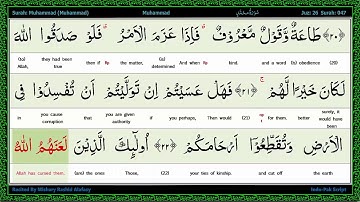 Surah: Muhammad (Muhammad) Muhammad Juz: 26 Surah: 047
﴿۲۰﴾ طَاعَةٌ وَّقَوۡلٌ مَّعۡرُوۡفٌ فَاِذَا عَزَمَ الۡاَمۡرُ فَلَوۡ صَدَقُوا اللّٰهَ
(to) Allah, they had been true then if the matter, (is) determined And when kind. and a word (Is) obedience (20)
لَـكَانَ خَيۡرًا لَّهُمۡ ﴿۲۱﴾ فَهَلۡ عَسَيۡتُمۡ اِنۡ تَوَلَّيۡتُمۡ اَنۡ تُفۡسِدُوۡا فِى
in you cause corruption that you are given authority if perhaps, you Then would (21) for them. better surely, it would have been
الۡاَرۡضِ وَتُقَطِّعُوۡۤا اَرۡحَامَكُمۡ ﴿۲۲﴾ اُولٰٓٮِٕكَ الَّذِيۡنَ لَعَنَهُمُ اللّٰهُ
Allah has cursed them, (are) the ones Those, (22) your ties of kinship. and cut off the earth
Recited By Mishary Rashid Alafasy Indo-Pak Script